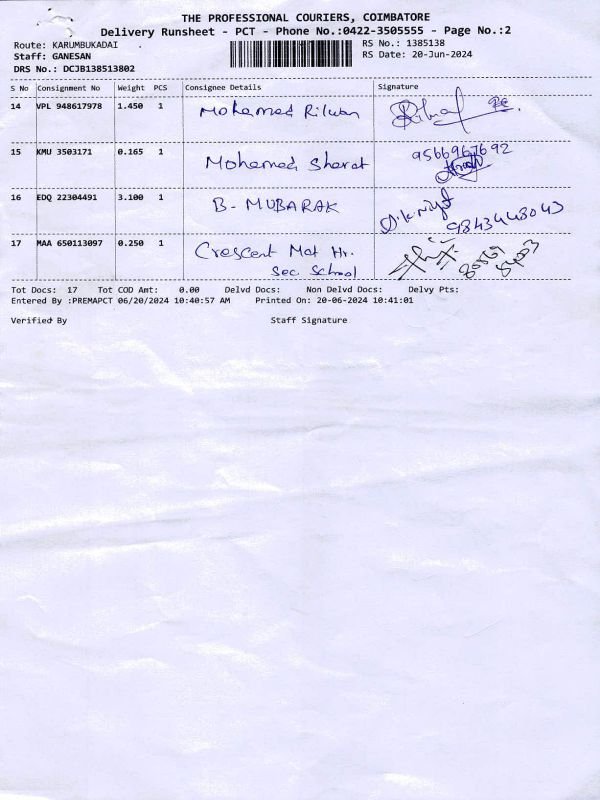 THE PROFESSIONAL COURIERS, COIMBATORE
Delivery Runsheet - PCT - Phone No.:0422-3505555 - Page No.:2
Route: KARUMBUKADAI . RS No.: 1385138
Staff: GANESAN RS Date: 20-Jun-2024
DRS No.: DCJB138513802
S No Consignment No Weight PCS Consignee Details Signature
14 VPL 948617978 1.450 1 Mohamed Rilwan
15 KMU 3503171 0.165 1 Mohamed Sherat 9566967692
16 EDQ 22304491 3.100 1 B- MUBARAK 9843448043
17 MAA 650113097 0.250 1 Crescent Mat Hr.
Sec School
Tot Docs: 17 Tot COD Amt: 0.00 Delvd Docs: Non Delvd Docs: Delvy Pts:
Entered By :PREMAPCT 06/20/2024 10:40:57 AM Printed On: 20-06-2024 10:41:01
Verified By Staff Signature